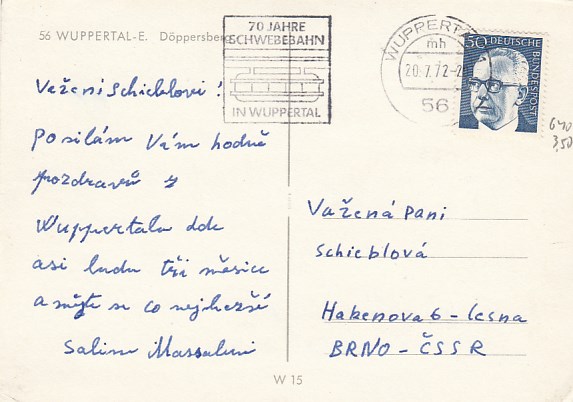 56 WUPPERTAL-E. Döppersberg
70 JAHRE
SCHWEBEBAHN
IN WUPPERTAL
WUPPERTAL
mh
20.7.72-2
56
50 DEUTSCHE
BUNDESPOST
640
3,50
Vážení Schieblovi!
posílám Vám hodně
pozdravů z
Wuppertalu zde
asi budu tři měsíce
a mějte se co nejhezší
Salim
Vážená paní
Schieblová
Hakenova 6 - Lesna
BRNO - ČSSR
W 15